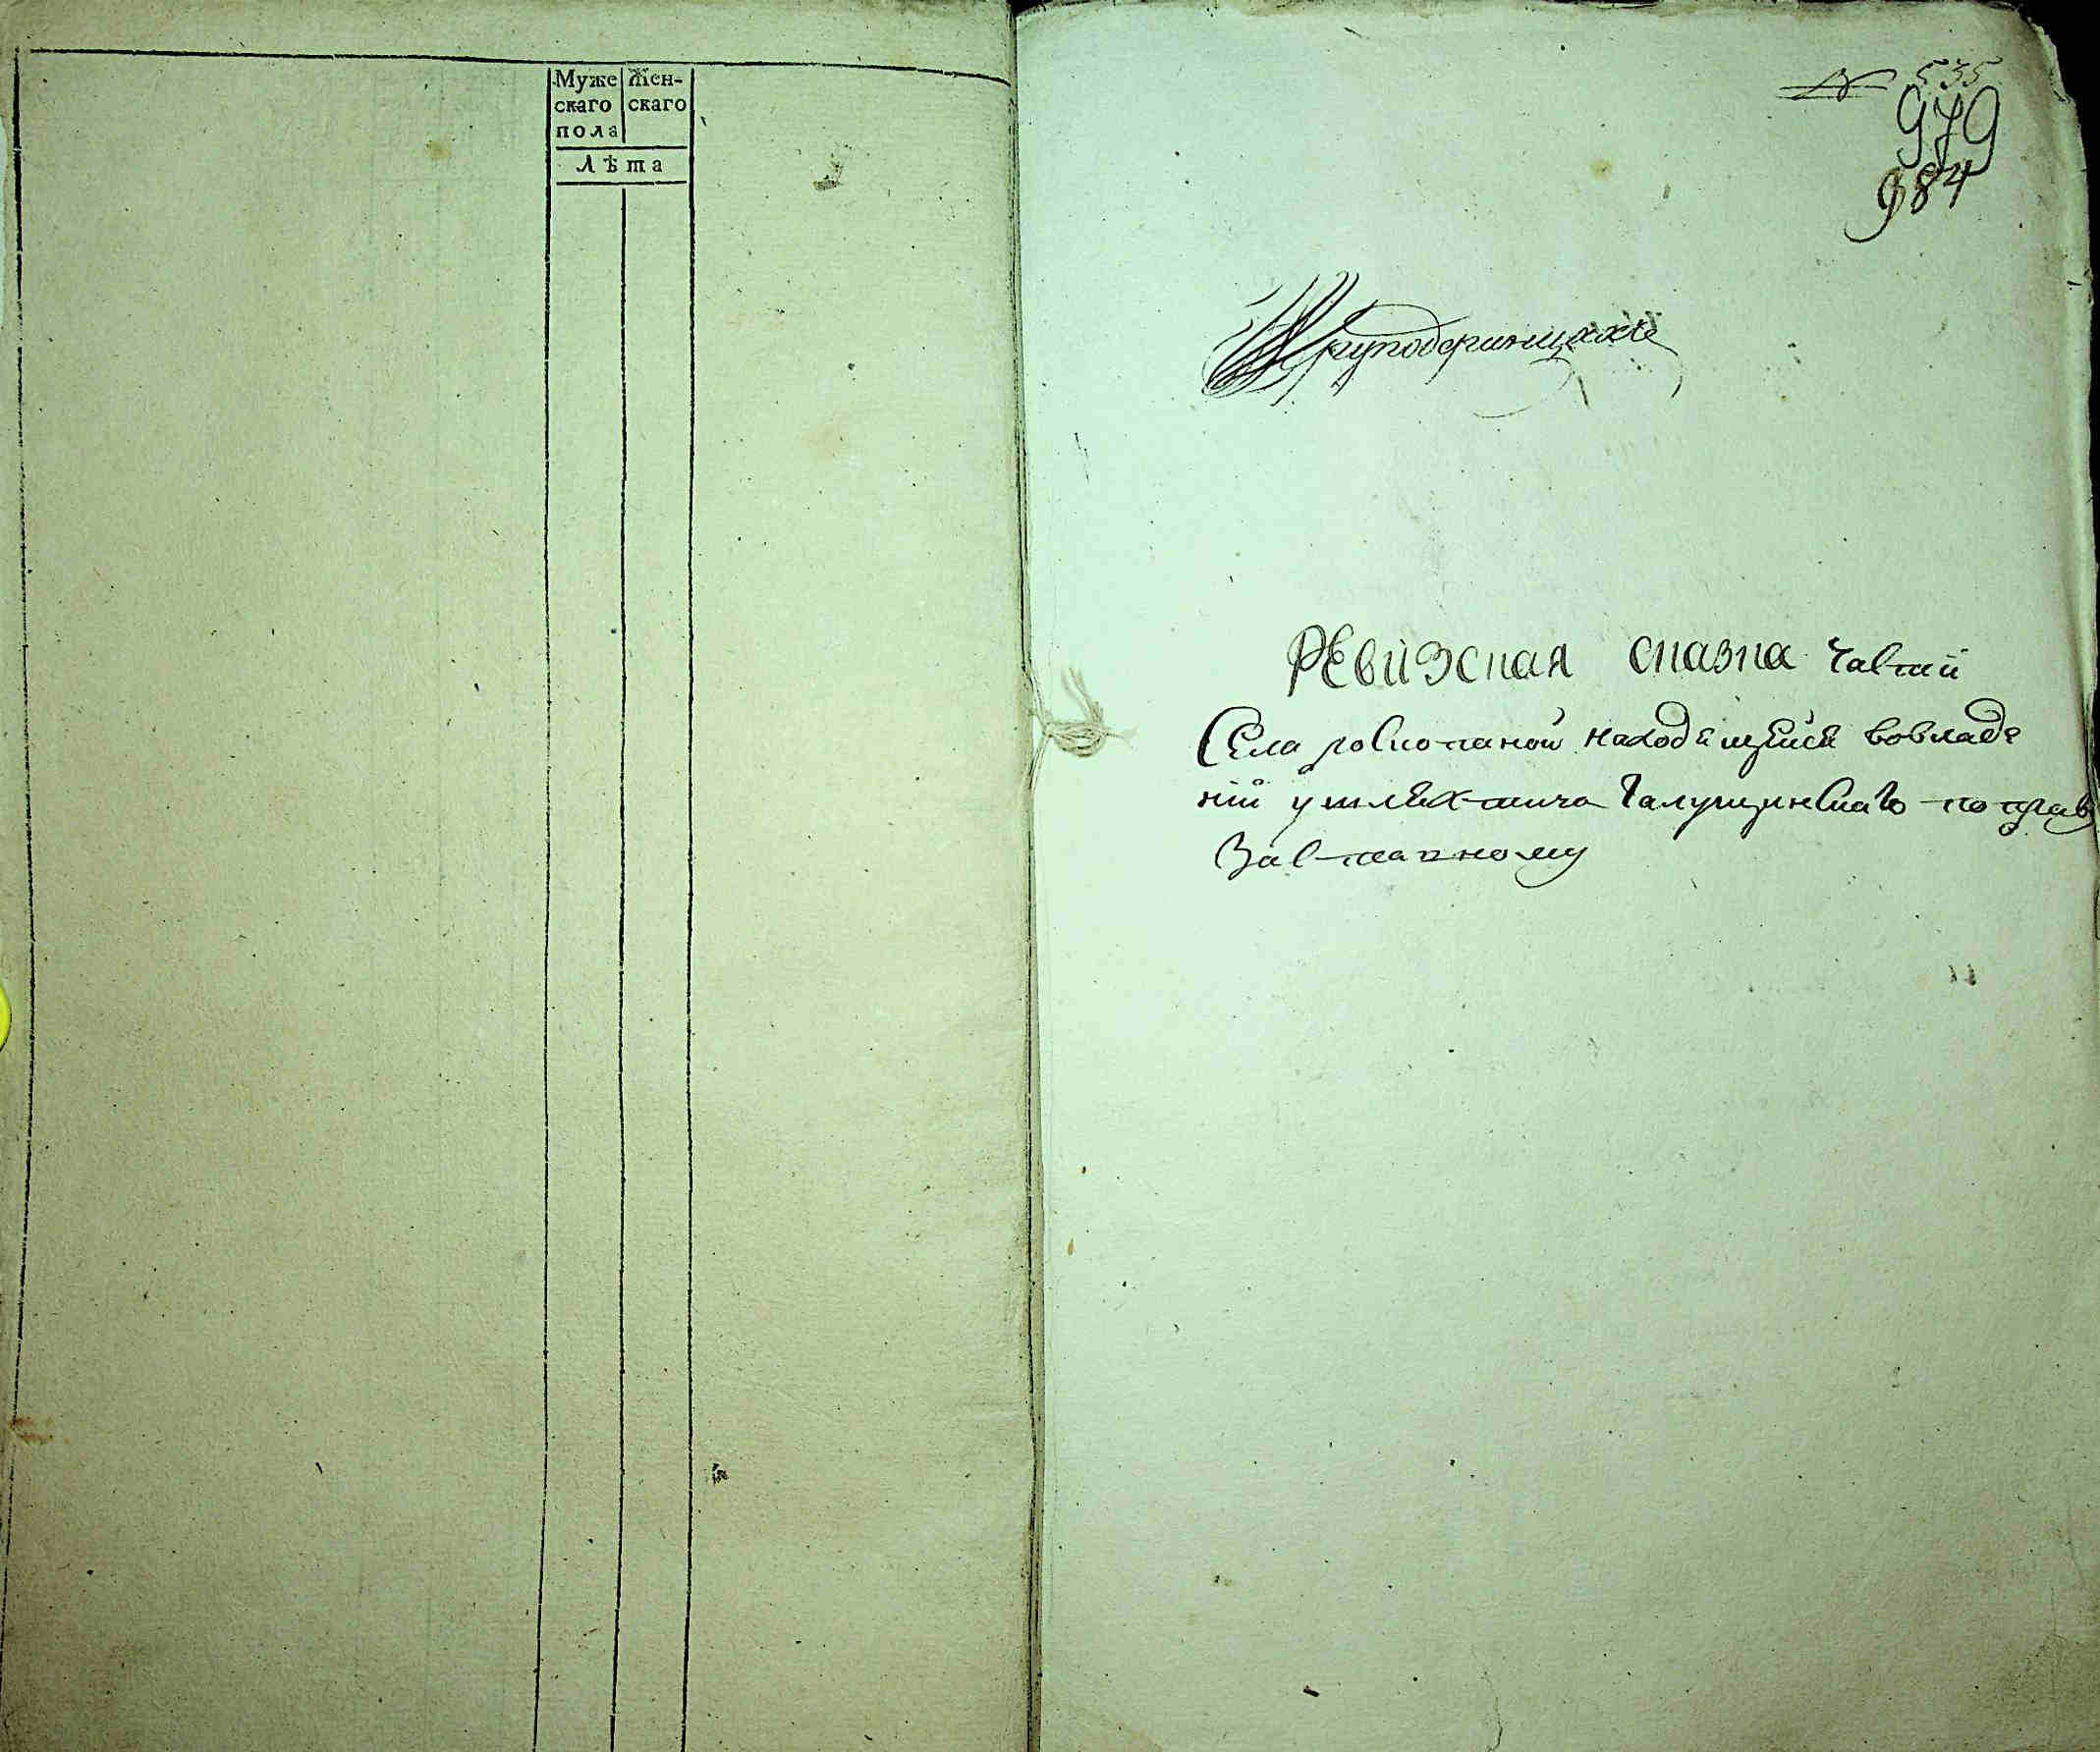 Муже Жен-
скаго скаго
пола
Лѣта
535
979
984
Круподеринцкхіе
РЕвиЗская сказка Части
Села роскопаной находѣщейсѣ вовладе
ніи ушлѣхтича Галущинскаго по прав
Заставному